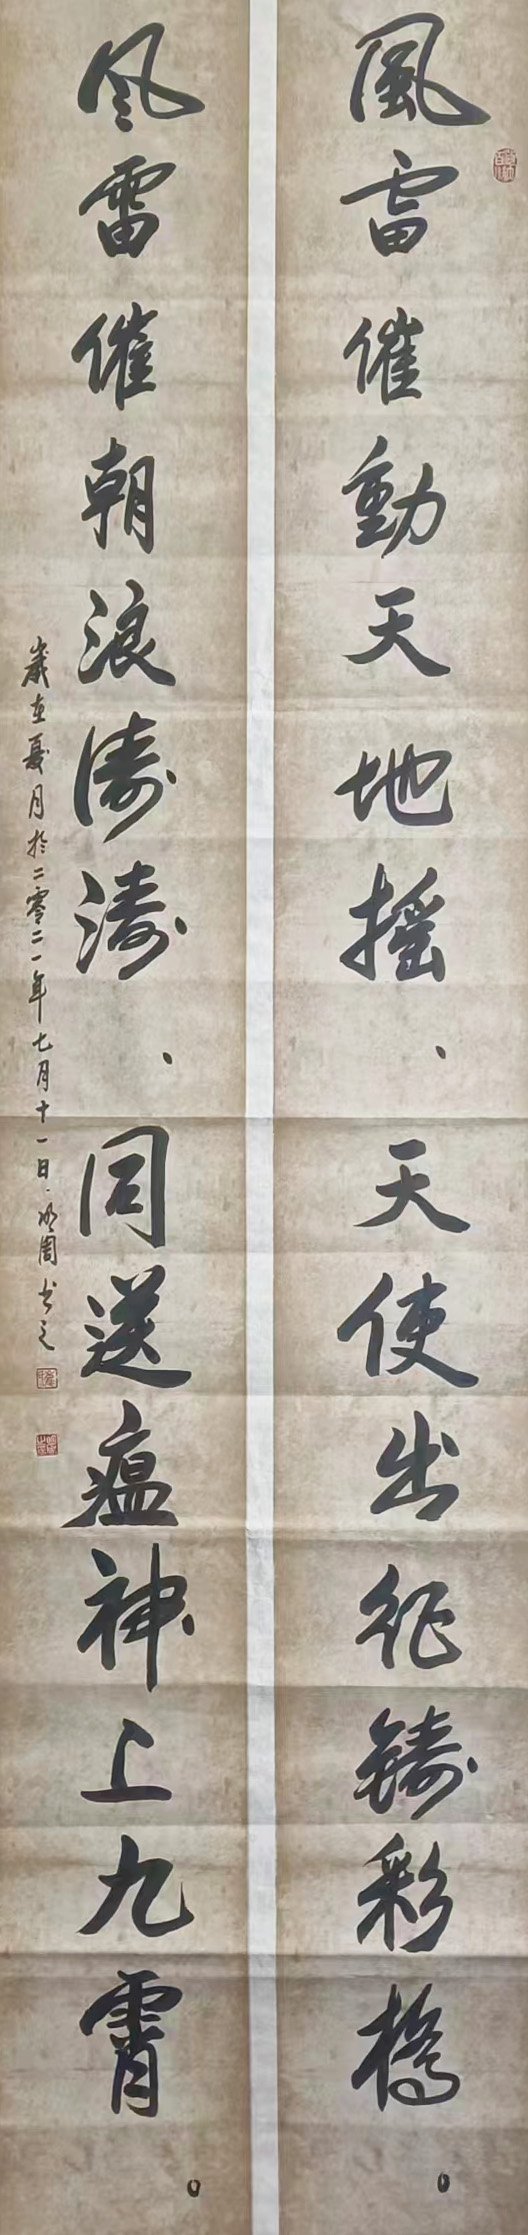 風雷催動天地摇、天使出征鑄彩橋。
风雷催朝浪涛濤、同送瘟神上九霄。
歲在夏月於二零二一年七月十一日周书之